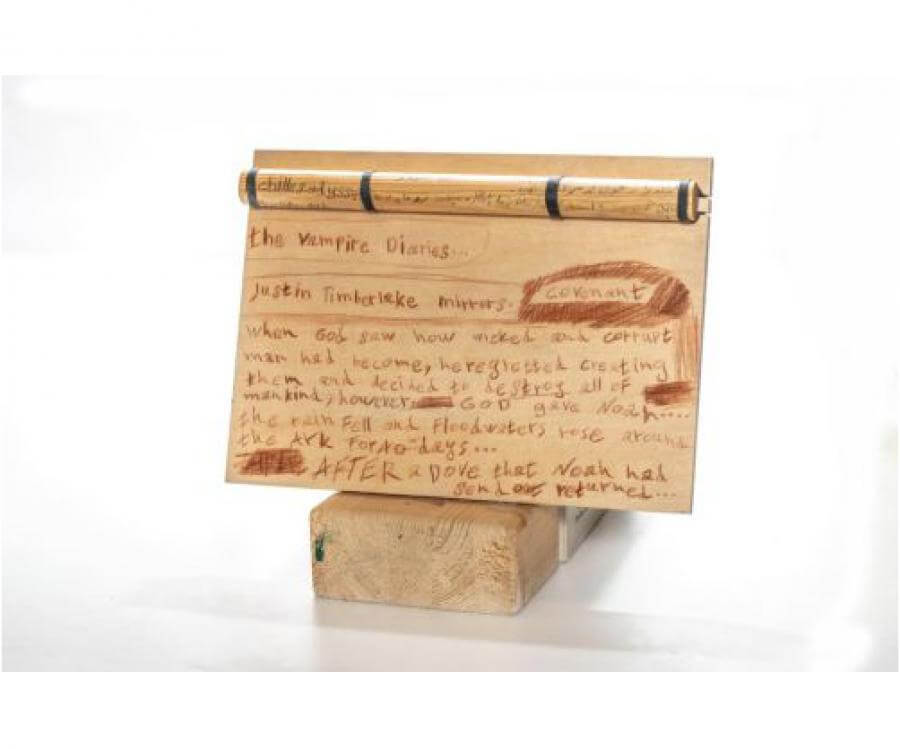 the vampire Diaries...
Justin Timberlake mirrors.
covenant
when God saw how wicked and corrupt
man had become, he regretted creating
them and decided to destroy all of
mankind, however, GOD gave Noah....
the rain Fell and Floodwaters rose around
the Ark For 40 days...
AFTER a DOVE that Noah had
send out returned...